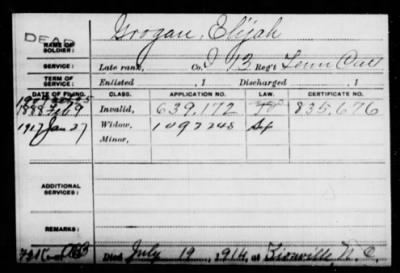 DEAD
NAME OF SOLDIER: Grogan, Elijah
SERVICE: Late rank, Co. I 13 Reg't Tenn Cav
TERM OF SERVICE: Enlisted , 1 Discharged , 1
DATE OF FILING. CLASS. APPLICATION NO. LAW. CERTIFICATE NO.
1888 Feb 9 Invalid, 639,172 835,676
1917 Jan 27 Widow, 1092248
Minor,
ADDITIONAL SERVICES:
REMARKS:
Died July 19, 1914, at Zionville, N.C.